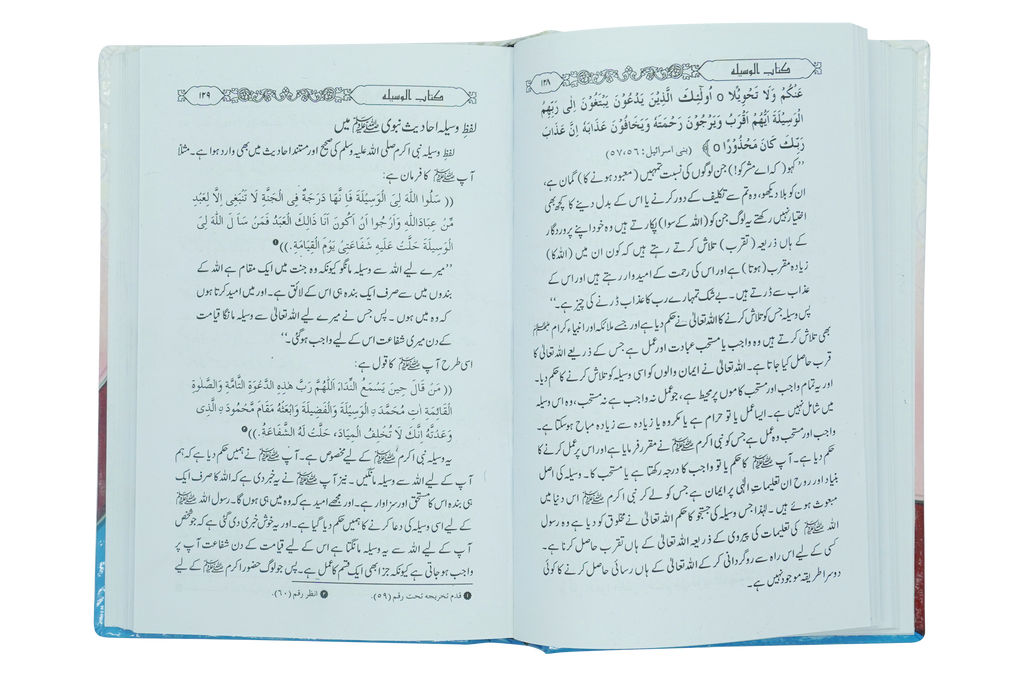 ۱۳۸
کتاب الوسیلہ
عَنْكُمْ وَلَا تَحْوِيْلًا o اُولٰٓئِكَ الَّذِيْنَ يَدْعُوْنَ يَبْتَغُوْنَ اِلٰى رَبِّهِمُ
الْوَسِيْلَةَ اَيُّهُمْ اَقْرَبُ وَيَرْجُوْنَ رَحْمَتَهٗ وَيَخَافُوْنَ عَذَابَهٗ اِنَّ عَذَابَ
رَبِّكَ كَانَ مَحْذُوْرًا o ﴾ (بنی اسرائیل: ۵۷،۵۶)
”کہو (کہ اے مشرکو!) جن لوگوں کی نسبت تمہیں (معبود ہونے کا) گمان ہے،
ان کو بلا دیکھو، وہ تم سے تکلیف کے دور کرنے یا اس کے بدل دینے کا کچھ بھی
اختیار نہیں رکھتے یہ لوگ جن کو (اللہ کے سوا) پکارتے ہیں وہ خود اپنے پروردگار
کے ہاں ذریعہ (تقرب) تلاش کرتے رہتے ہیں کہ کون ان میں (اللہ کا)
زیادہ مقرب (ہوتا) ہے اور اس کی رحمت کے امیدوار رہتے ہیں اور اس کے
عذاب سے ڈرتے ہیں۔ بے شک تمہارے رب کا عذاب ڈرنے کی چیز ہے۔“
پس وسیلہ جس کو تلاش کرنے کا اللہ تعالیٰ نے حکم دیا ہے اور جسے ملائکہ اور انبیاء کرام ﷺ
بھی تلاش کرتے ہیں وہ واجب یا مستحب عبادت اور عمل ہے جس کے ذریعے اللہ تعالیٰ کا
قرب حاصل کیا جاتا ہے۔ اللہ تعالیٰ نے ایمان والوں کو اسی وسیلہ کو تلاش کرنے کا حکم دیا۔
اور یہ تمام واجب اور مستحب کاموں پر محیط ہے، جو عمل نہ واجب ہے نہ مستحب، وہ اس وسیلہ
میں شامل نہیں ہے۔ ایسا عمل یا تو حرام ہے یا مکروہ یا زیادہ سے زیادہ مباح ہو سکتا ہے۔
واجب اور مستحب وہ عمل ہے جس کو نبی اکرم ﷺ نے مقرر فرمایا ہے اور اس پر عمل کرنے کا
حکم دیا ہے۔ آپ ﷺ کا حکم یا تو واجب کا درجہ رکھتا ہے یا مستحب کا۔ وسیلہ کی اصل
بنیاد اور روح ان تعلیمات الٰہی پر ایمان ہے جس کو لے کر نبی اکرم ﷺ اس دنیا میں
مبعوث ہوئے ہیں۔ لہٰذا جس وسیلہ کی جستجو کا حکم اللہ تعالیٰ نے مخلوق کو دیا ہے وہ رسول
اللہ ﷺ کی تعلیمات کی پیروی کے ذریعہ اللہ تعالیٰ کے ہاں تقرب حاصل کرنا ہے۔
کسی کے لیے اس راہ سے روگردانی کر کے اللہ تعالیٰ کے ہاں رسائی حاصل کرنے کا کوئی
دوسرا طریقہ موجود نہیں ہے۔
۱۳۹
کتاب الوسیلہ
لفظِ وسیلہ احادیث نبوی ﷺ میں
لفظِ وسیلہ نبی اکرم صلی اللہ علیہ وسلم کی صحیح اور مستند احادیث میں بھی وارد ہوا ہے۔ مثلاً
آپ ﷺ کا فرمان ہے:
(( سَلُوا اللّٰهَ لِىَ الْوَسِيْلَةَ فَاِنَّهَا دَرَجَةٌ فِى الْجَنَّةِ لَا تَنْبَغِى اِلَّا لِعَبْدٍ
مِّنْ عِبَادِاللّٰهِ وَاَرْجُوا اَنْ اَكُوْنَ اَنَا ذَالِكَ الْعَبْدُ فَمَنْ سَاَ لَ اللّٰهَ لِىَ
الْوَسِيْلَةَ حَلَّتْ عَلَيْهِ شَفَاعَتِىْ يَوْمَ الْقِيَامَةِ.)) ❶
”میرے لیے اللہ سے وسیلہ مانگو کیونکہ وہ جنت میں ایک مقام ہے اللہ کے
بندوں میں سے صرف ایک بندہ ہی اس کے لائق ہے۔ اور میں امید کرتا ہوں
کہ وہ میں ہوں۔ پس جس نے میرے لیے اللہ تعالیٰ سے وسیلہ مانگا قیامت
کے دن میری شفاعت اس کے لیے واجب ہوگئی۔“
اسی طرح آپ ﷺ کا قول ہے:
(( مَنْ قَالَ حِيْنَ يَسْمَعُ النِّدَاءَ اَللّٰهُمَّ رَبَّ هٰذِهِ الدَّعْوَةِ التَّآمَّةِ وَالصَّلٰوةِ
الْقَائِمَةِ اٰتِ مُحَمَّدَ نِ الْوَسِيْلَةَ وَالْفَضِيْلَةَ وَابْعَثْهُ مَقَامَ مَّحْمُوْدَ نِ الَّذِى
وَعَدْتَّهُ اِنَّكَ لَا تُخْلِفُ الْمِيْعَادَ، حَلَّتْ لَهُ الشَّفَاعَةُ.)) ❷
یہ وسیلہ نبی اکرم ﷺ کے لیے مخصوص ہے۔ آپ ﷺ نے ہمیں حکم دیا ہے کہ ہم
آپ کے لیے اللہ سے وسیلہ مانگیں۔ نیز آپ ﷺ نے یہ خبر دی ہے کہ اللہ کا صرف ایک
ہی بندہ اس کا مستحق اور سزاوار ہے۔ اور مجھے امید ہے کہ وہ میں ہی ہوں گا۔ رسول اللہ ﷺ
کے لیے اسی وسیلہ کی دعا کرنے کا ہمیں حکم دیا گیا ہے۔ اور یہ خوش خبری دی گئی ہے کہ جو شخص
آپ کے لیے اللہ سے یہ وسیلہ مانگتا ہے اس کے لیے قیامت کے دن شفاعت آپ پر
واجب ہو جاتی ہے کیونکہ جزا بھی ایک قسم کا عمل ہے۔ پس جو لوگ حضور اکرم ﷺ کے لیے
❶ قدم تخریجه تحت رقم (۵۹). ❷ انظر رقم (۶۰).